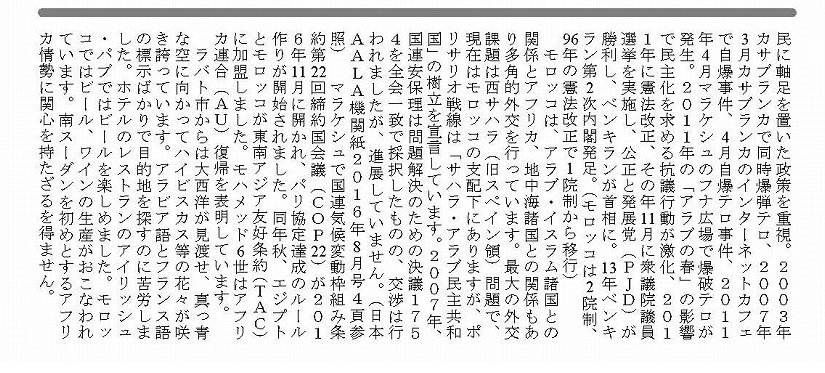 民に軸足を置いた政策を重視。２００３年
カサブランカで同時爆弾テロ、２００７年
３月カサブランカのインターネットカフェ
で自爆事件、４月自爆テロ事件、２０１１
年４月マラケシュのフナ広場で爆破テロが
発生。２０１１年の「アラブの春」の影響
で民主化を求める抗議行動が激化、２０１
１年に憲法改正、その年11月に衆議院議員
選挙を実施し、公正と発展党（ＰＪＤ）が
勝利し、ベンキランが首相に。13年ベンキ
ラン第２次内閣発足。（モロッコは２院制、
96年の憲法改正で１院制から移行）
　モロッコは、アラブ・イスラム諸国との
関係とアフリカ、地中海諸国との関係もあ
り多角的外交を行っています。最大の外交
課題は西サハラ（旧スペイン領）問題で、
現在はモロッコの支配下にありますが、ポ
リサリオ戦線は「サハラ・アラブ民主共和
国」の樹立を宣言しています。２００７年、
国連安保理は問題解決のための決議１７５
４を全会一致で採択したものの、交渉は行
われましたが、進展していません。（日本
ＡＡＬＡ機関紙２０１６年８月号４頁参
照）　マラケシュで国連気候変動枠組み条
約第22回締約国会議（ＣＯＰ22）が２０１
６年11月に開かれ、パリ協定達成のルール
作りが開始されました。同年秋、エジプト
とモロッコが東南アジア友好条約（ＴＡＣ）
に加盟しました。モハメッド６世はアフリ
カ連合（ＡＵ）復帰を表明しています。
　ラバト市からは大西洋が見渡せ、真っ青
な空に向かってハイビスカス等の花々が咲
き誇っています。アラビア語とフランス語
の標示ばかりで目的地を探すのに苦労しま
した。ホテルのレストランのアイリッシュ
・パブではビールを楽しめました。モロッ
コではビール、ワインの生産がおこなわれ
ています。南スーダンを初めとするアフリ
カ情勢に関心を持たざるを得ません。